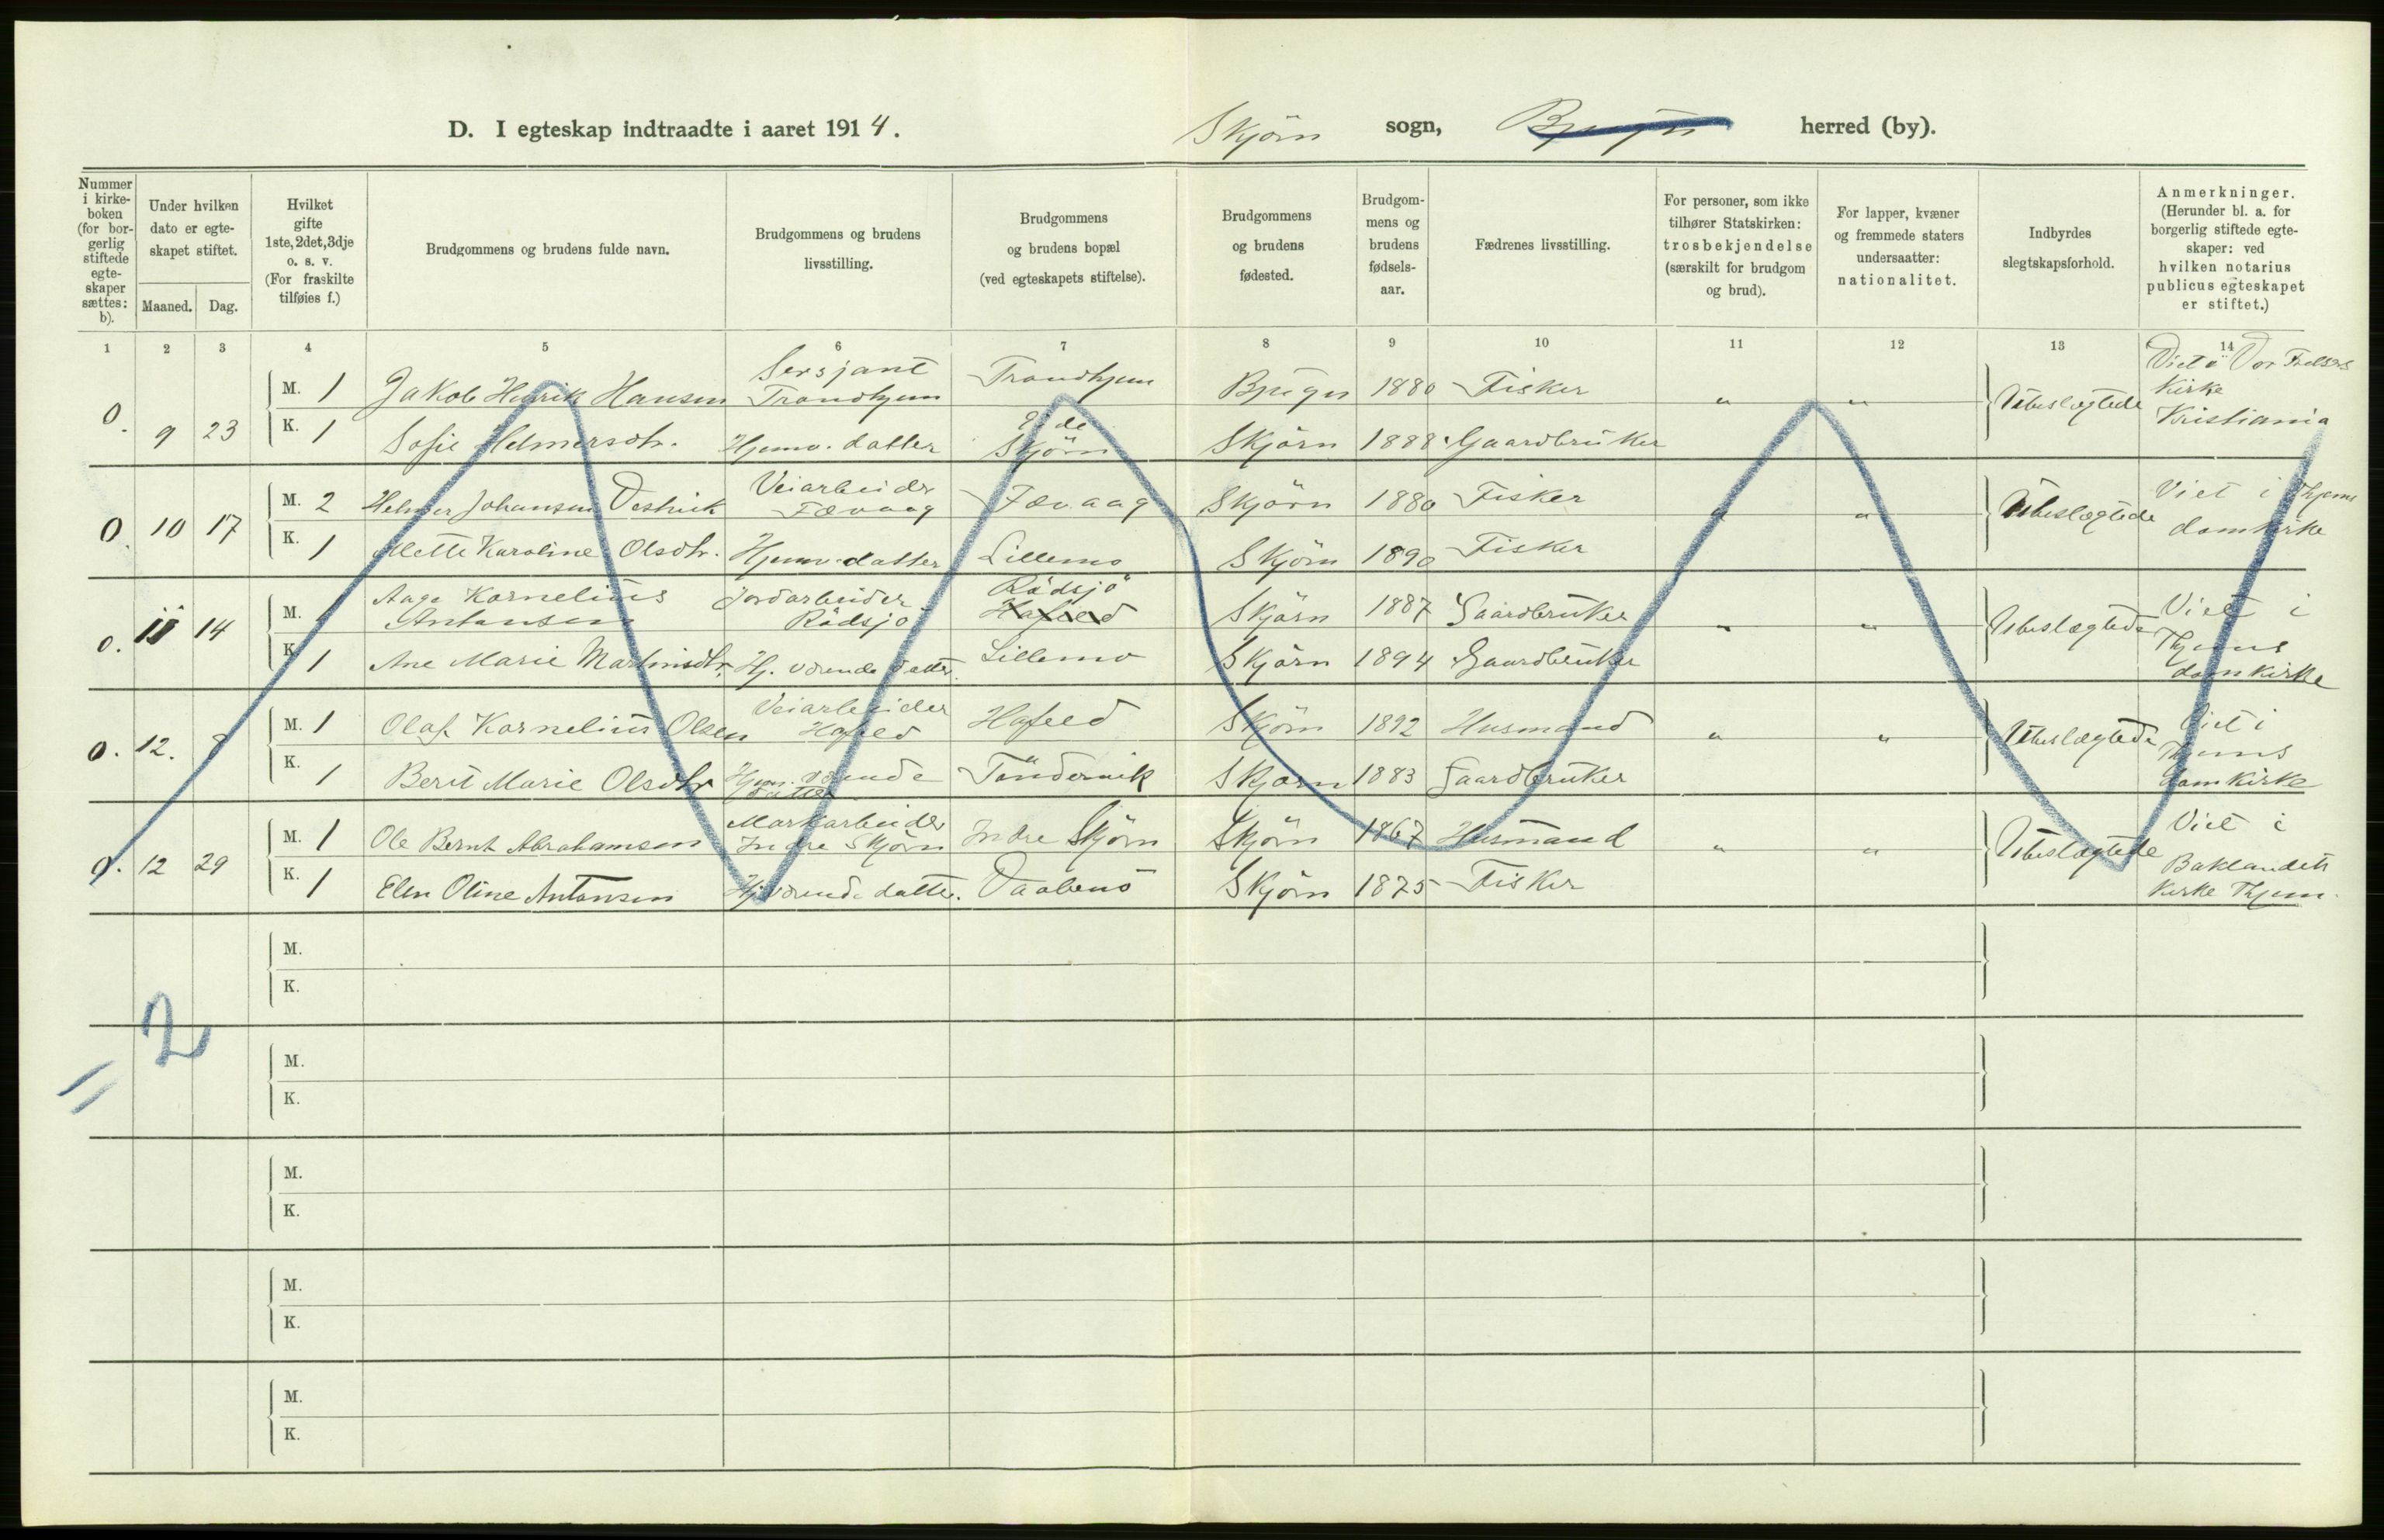 D. I egteskap indtraadte i aaret 1914. Skjörn sogn, Bjugn herred (by).
Nummer i kirke-boken (for bor-gerlig stiftede egte-skaper sættes: b).
Under hvilken dato er egte-skapet stiftet.
Maaned. Dag.
Hvilket gifte 1ste, 2det, 3dje o. s. v. (For fraskilte tilføies f.)
Brudgommens og brudens fulde navn.
Brudgommens og brudens livsstilling.
Brudgommens og brudens bopæl (ved egteskapets stiftelse).
Brudgommens og brudens fødested.
Brudgom-mens og brudens fødsels-aar.
Fædrenes livsstilling.
For personer, som ikke tilhører Statskirken: trosbekjendelse (særskilt for brudgom og brud).
For lapper, kvæner og fremmede staters undersaatter: nationalitet.
Indbyrdes slegtskapsforhold.
Anmerkninger. (Herunder bl. a. for borgerlig stiftede egte-skaper: ved hvilken notarius publicus egteskapet er stiftet.)
1 2 3 4 5 6 7 8 9 10 11 12 13 14
0. 9 23
M. 1 Jakob Henrik Hansen Sersjant Trondhjem Trondhjem Bjugn 1880 Fisker " " Ubeslægtede Viet i Vor Frelsers Kirke Kristiania
K. 1 Sofie Helmersdtr. Hjemv. datter Eide Skjörn Skjörn 1888 Gaardbruker
0. 10 17
M. 2 Helmer Johansen Vestvik Veiarbeider Fævaag Fævaag Skjörn 1880 Fisker " " Ubeslægtede Viet i Thjems domkirke
K. 1 Mette Karoline Olsdtr. Hjemv. datter Lillemo Skjörn 1890 Fisker
0. 11 14
M. 1 Aage Kornelius Antonsen Jordarbeider Rödsjö Rödsjö Hafeld Skjörn 1887 Gaardbruker " " Ubeslægtede Viet i Thjems domkirke
K. 1 Ane Marie Martinsdtr. Hj. værende datter. Lillemo Skjörn 1894 Gaardbruker
0. 12. 8
M. 1 Olaf Kornelius Olsen Veiarbeider Hafeld Hafeld Skjörn 1892 Husmand " " Ubeslægtede Viet i Thjems domkirke
K. 1 Berit Marie Olsdtr Hjem. værende datter Töndervik Skjörn 1883 Gaardbruker
0. 12 29
M. 1 Ole Bernt Abrahamsen Markarbeider Indre Skjörn Indre Skjörn Skjörn 1867 Husmand " " Ubeslægtede Viet i Baklandets Kirke Thjem.
K. 1 Elen Oline Antonsen Hjværende datter. Skjörn 1875 Fisker
M.
K.
2
M.
K.
M.
K.
M.
K.
M.
K.